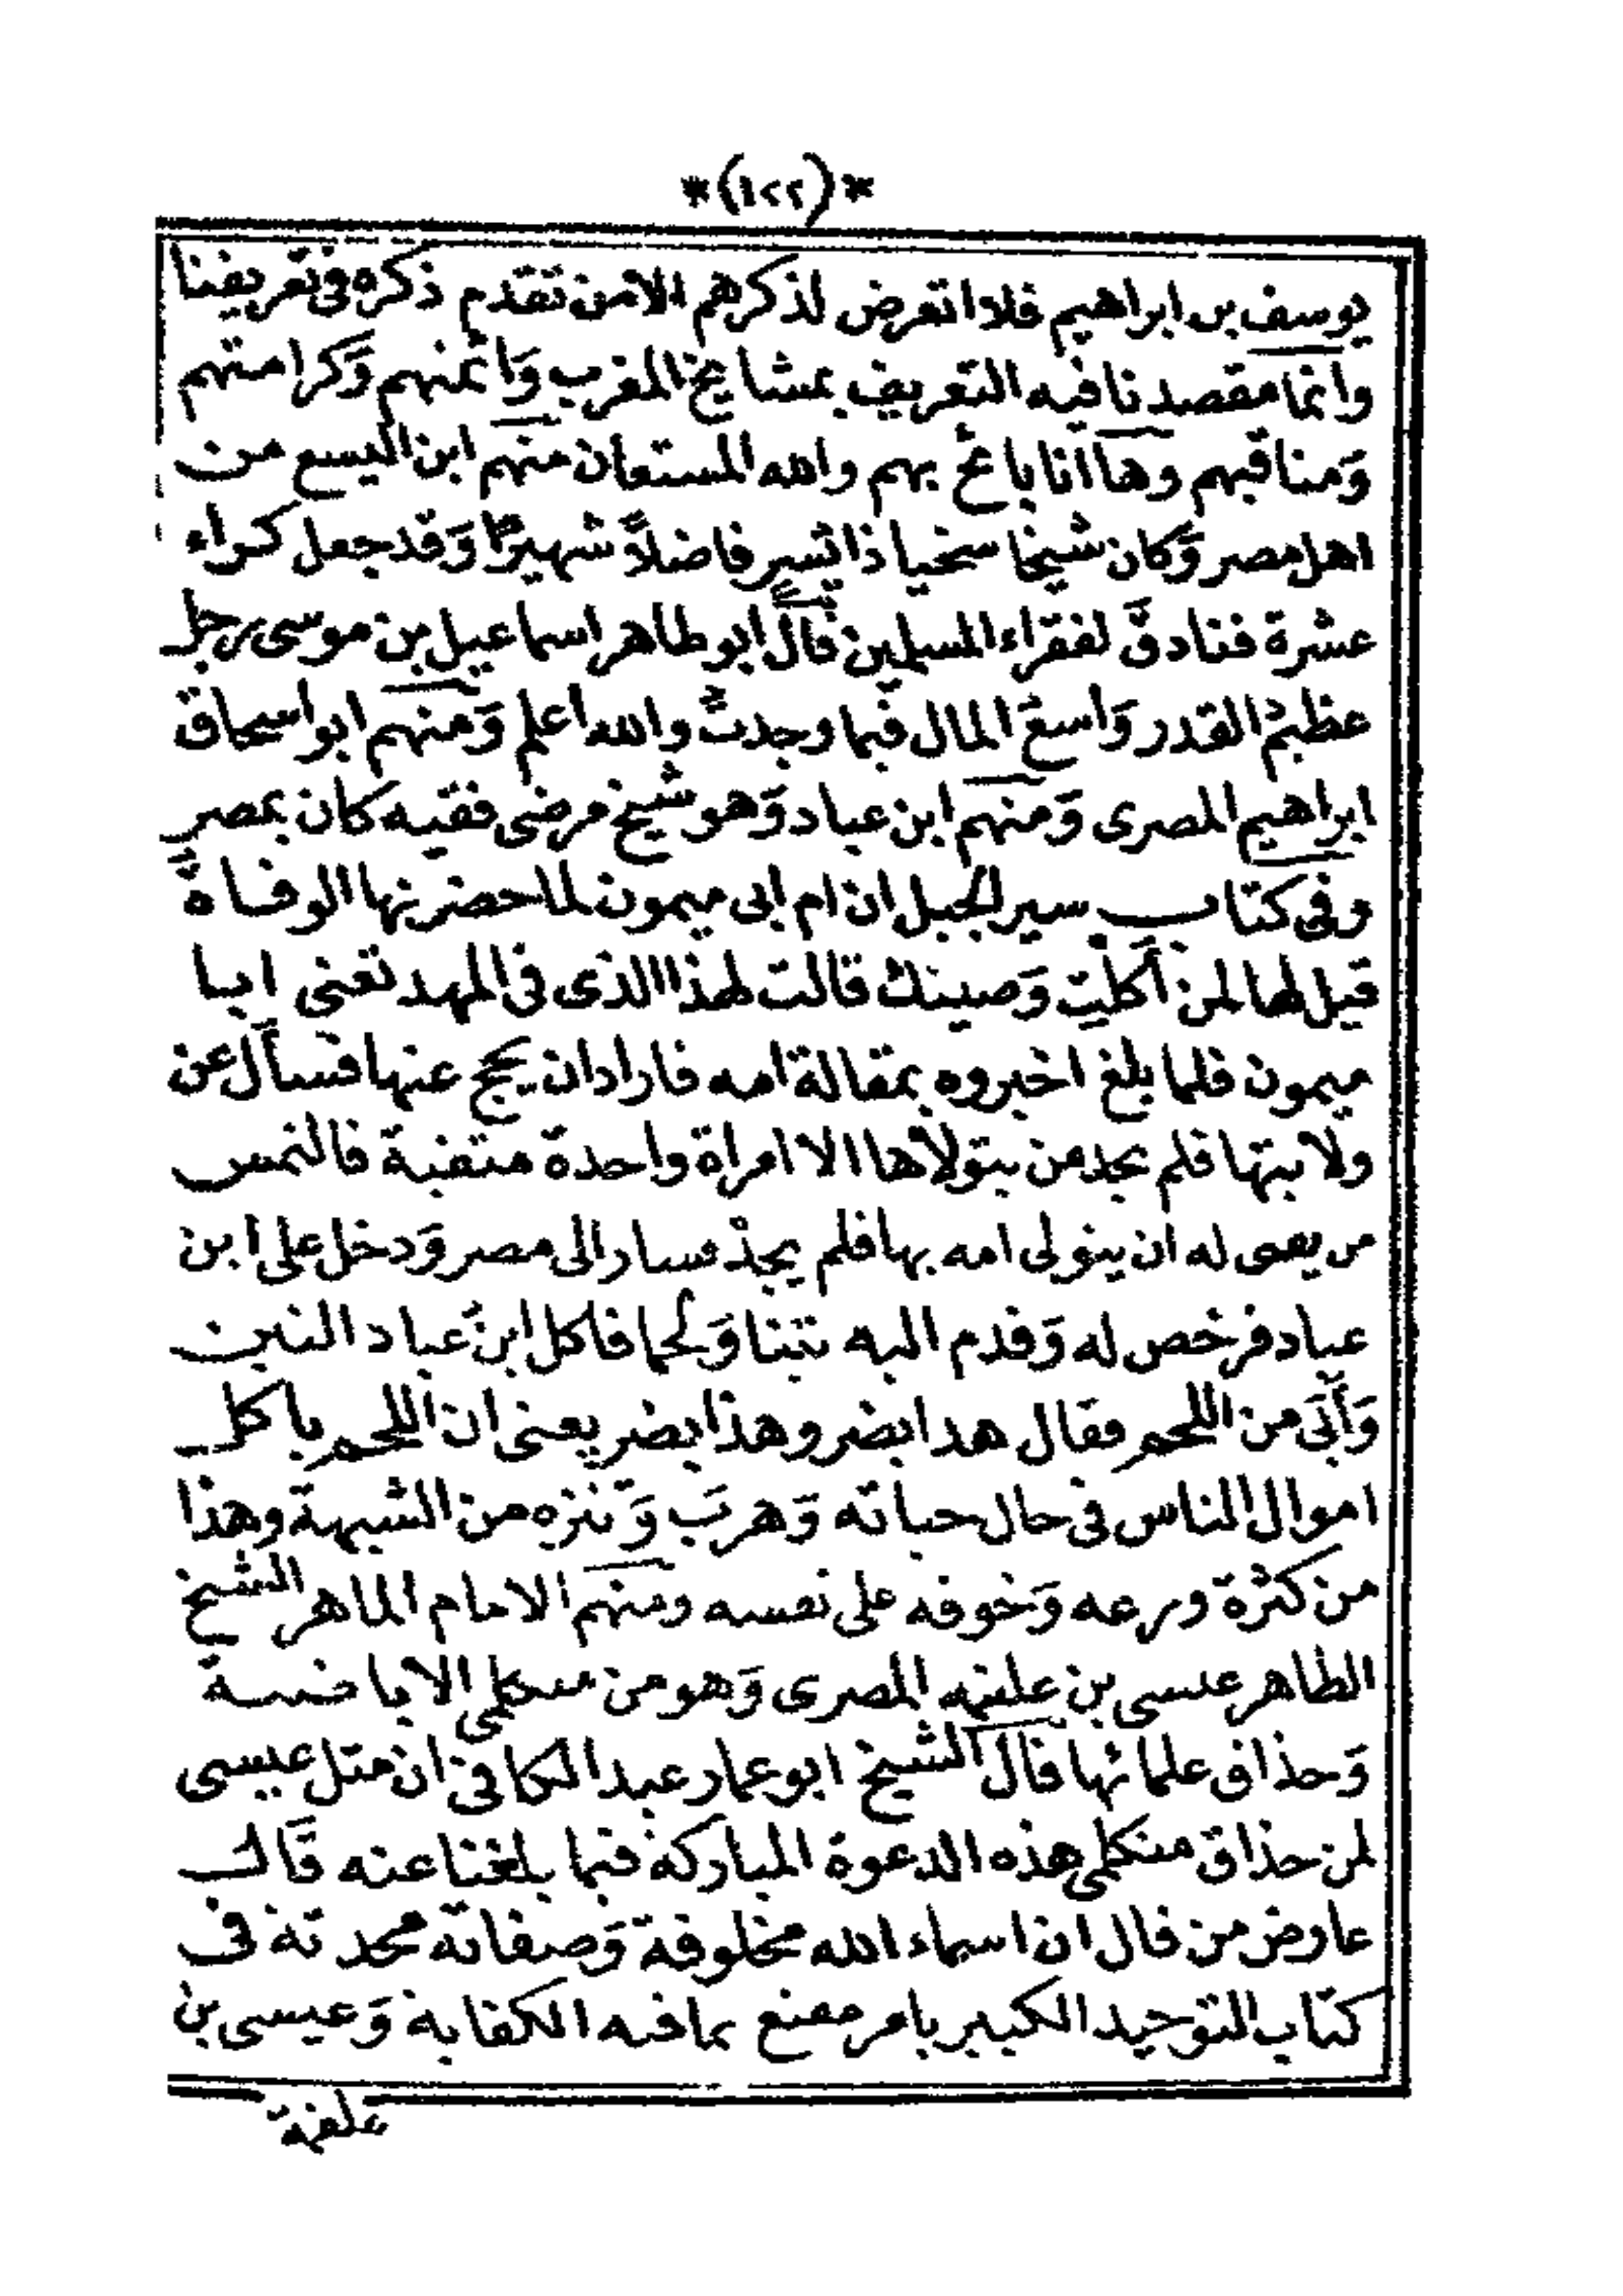 *(١٢٢)*
يوسف بن ابراهيم فلا اتعرض لذكرهم الا من تقدم ذكره فى تعريفنا
وانما مقصدنا فيه التعريف بمشايخ المغرب وَائمتهم وَكرامتهم
وَمناقبهم وها انا باعٌ بهم والله المستعان منهم ابن اليسع من
اهل مصر وَكان شيخا سخيا ذا تيسير فاضلاً شهيرًا وَقد جعل كراء
عشرة فنادق لفقراء المسلمين قال ابو طاهر اسماعيل بن موسى رجل
عظيمُ القدر وَاسعُ المال فيما وجدتُ والله اعلم وَمنهم ابو اسحاق
ابراهيم المصرى وَمنهم ابن عباد وَهو شيخ مرضى فقيه كان بمصر
وفى كتاب سير الجبل ان ام ابى ميمون لما حضرتها الوفاةُ
قيل لها لمن أكلتِ وَصيتك قالت لهذا الذى فى المهد تعنى ابا
ميمون فلما بلغ اخبروه بمقالة امه فاراد ان يحج عنها فسأل عن
ولايتها فلم يجد من يتولاها الا امراة واحدة منقبة فالتمس
من يفتى له ان يتولى امه بها فلم يجدْ فسار الى مصر وَدخل على ابن
عباد فرخص له وَقدم اليه تينا وَلحما فاكل ابنُ عباد التين
وَأبَى من اللحم فقال هذا يضر وهذا يضر يعنى ان اللحم ياكل
اموال الناس فى حال حياته وَهربَ وَتنزه من الشبهة وهذا
من كثرة ورعه وَخوفه على نفسه ومنهم الامام الماهر الشيخ
الطاهر عيسى بن علقمة المصرى وَهو من متكلمى الاباضية
وَحذاق علمائها قال الشيخ ابو عمار عبد الكافى ان مثل عيسى
لمن حذاق متكلمى هذه الدعوة المباركة فيما بلغنا عنه قَال
عارض من قال ان اسماء الله مخلوقة وَصفاته محدثة فى
كتاب التوحيد الكبير بامر مقنع بما فيه الكفاية وَعيسى بن
علقمة